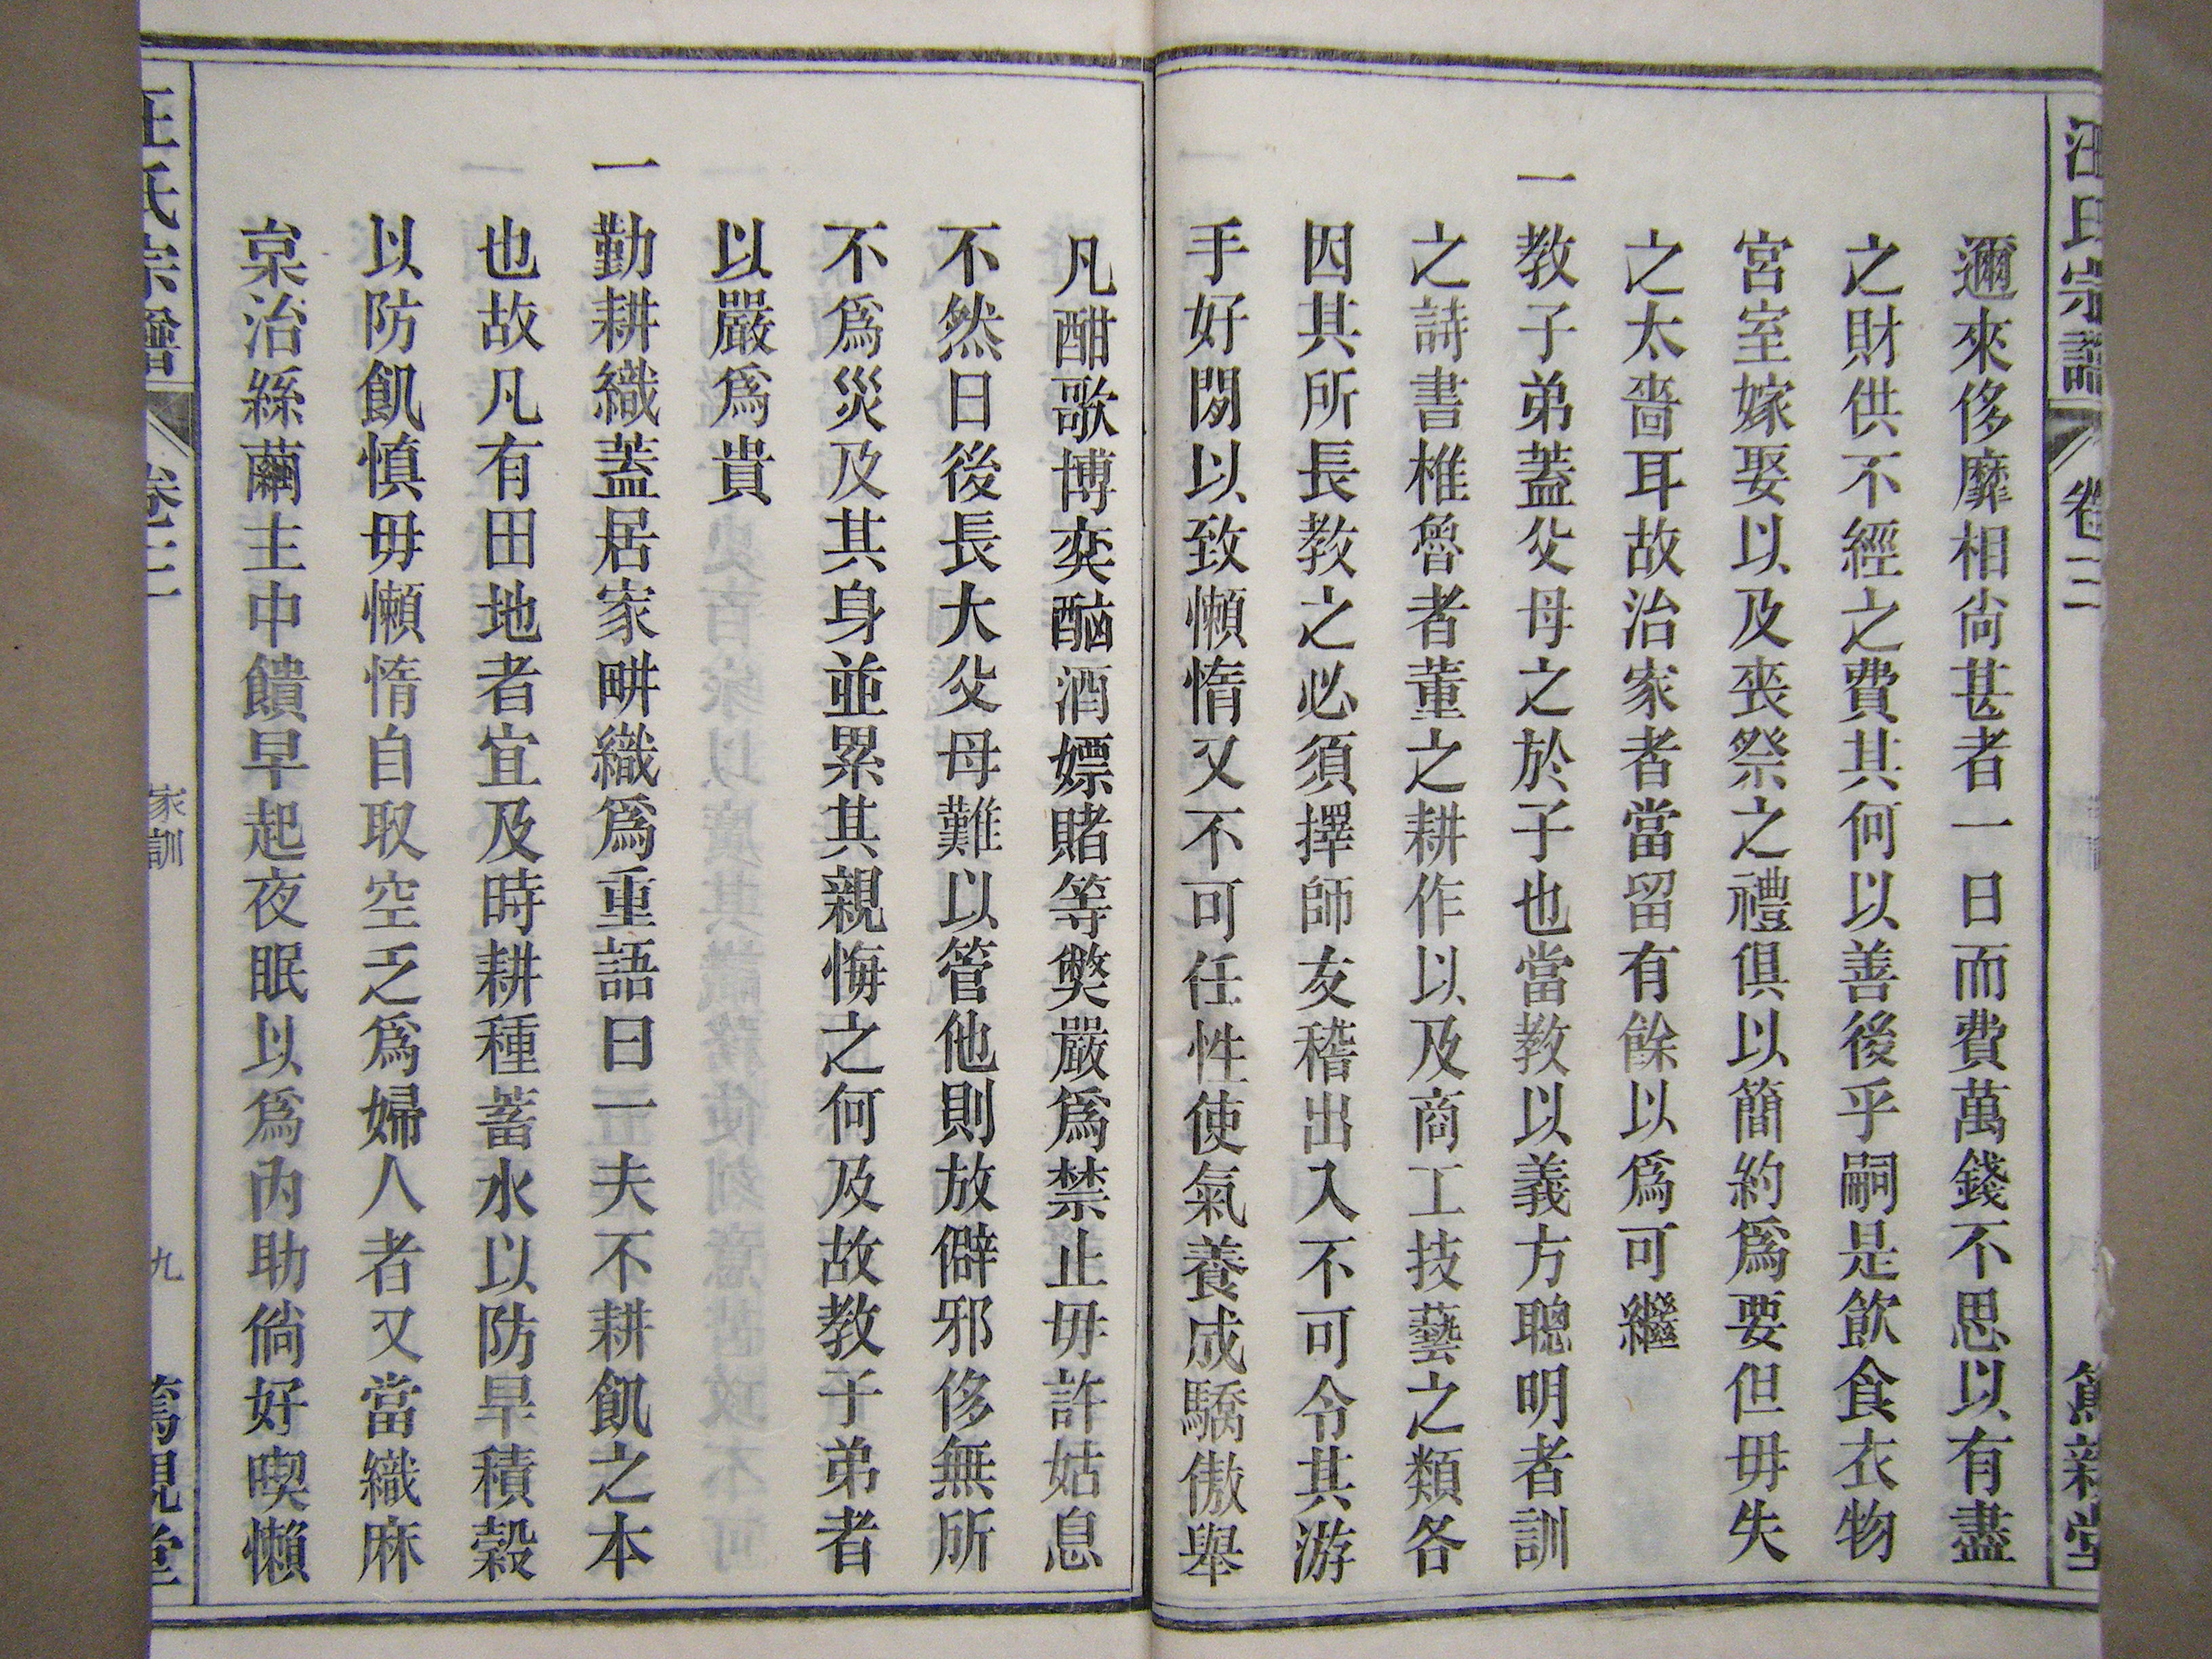 汪氏宗譜 卷三
邇來侈靡相尙甚者一日而費萬錢不思以有盡
之財供不經之費其何以善後乎嗣是飮食衣物
宮室嫁娶以及喪祭之禮俱以簡約爲要但毋失
之太嗇耳故治家者當留有餘以爲可繼
一教子弟蓋父母之於子也當教以義方聰明者訓
之詩書椎魯者董之耕作以及商工技藝之類各
因其所長教之必須擇師友稽出入不可令其游
手好閒以致懶惰又不可任性使氣養成驕傲舉
凡酣歌博奕酗酒嫖賭等獘嚴爲禁止毋許姑息
不然日後長大父母難以管他則放僻邪侈無所
不爲災及其身並累其親悔之何及故教子弟者
以嚴爲貴
一勤耕織蓋居家畊織爲重語曰一夫不耕飢之本
也故凡有田地者宜及時耕種蓄水以防旱積穀
以防飢慎毋懶惰自取空乏爲婦人者又當織麻
枲治絲繭主中饋早起夜眠以爲內助倘好喫懶
汪氏宗譜 卷三 家訓 九 篤親堂